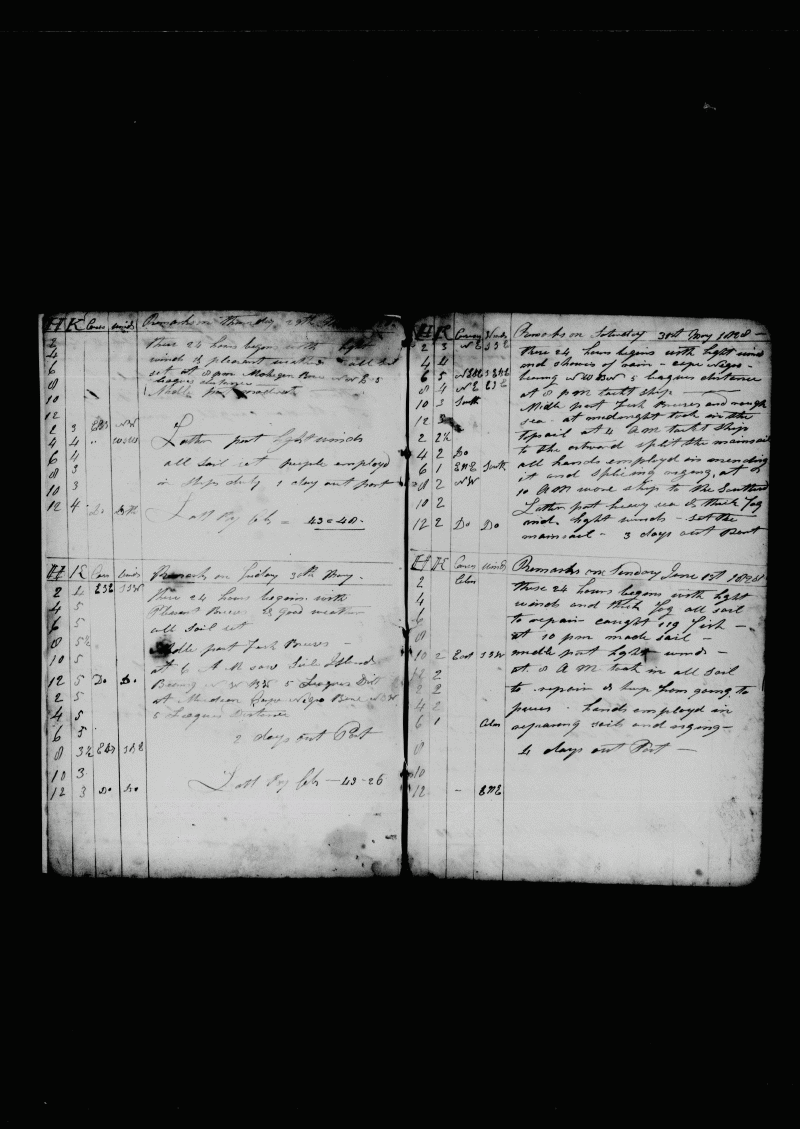 H K Cours winds Remarks on Thursday 29th
2 these 24 hours begins with light
4 wind & pleasant weather all sail
6 set at 8 pm Mohegan Bore NW 5
8 leagues distance
10 Midle part
12
2 3 EBS NW
4 4 " Later part light winds
6 4 all sail set people employd
8 3 in ships duty 1 day out port
10 3
12 4 Do Latt By Ob = 43=40
H K Cors winds Remarks on Friday 30th May
2 4 ESE SSW these 24 hours begins with
4 5 Plesant Breses & good weather
6 5 all sail set
8 5½ Midle part fresh Breses
10 5 at 6 A M saw Seile Island
12 5 Do Do Bearing 5 Leagues Dist
2 5 at Meridian Cape Negro Bore
4 5 5 Leagues Distance
6 5 2 days out Port
8 3½ EBS
10 3 Latt By Ob — 43-26
12 3 Do Do
H K Courses Winds Remarks on Saturday 31st May 1828
2 3 NE SSE these 24 hours begins with light wind
4 4 and showers of rain - cape Negro
6 5 bearing 5 leagues distance
8 4 NE ESE at 8 pm tackt ship
10 3 South Midle part fresh Breses and rough
12 3 sea at midnight took in the
2 2½ topsail at 4 AM tackt ship
4 2 Do to the estward split the mainsail
6 1 ENE South all hands employd in mending
8 2 NW it and spliceing riging, at
10 2 10 AM wore ship to the Southard
12 2 Do Do Later part heavy sea & thick fog
and light winds - set the
mainsail - 3 days out Port
H K Cours winds Remarks on Sunday June 1st 1828
2 Calm these 24 hours begins with light
4 winds and thick fog all sail
6 to repair caught 119 fish
8 at 10 pm made sail
10 2 East SSW midle part light winds
12 2 at 8 A M took in all sail
2 2 to repair & keep from going to
4 2 peices hands employd in
6 1 Calm repairing sails and riging
8 4 days out Port
10
12 - ENE